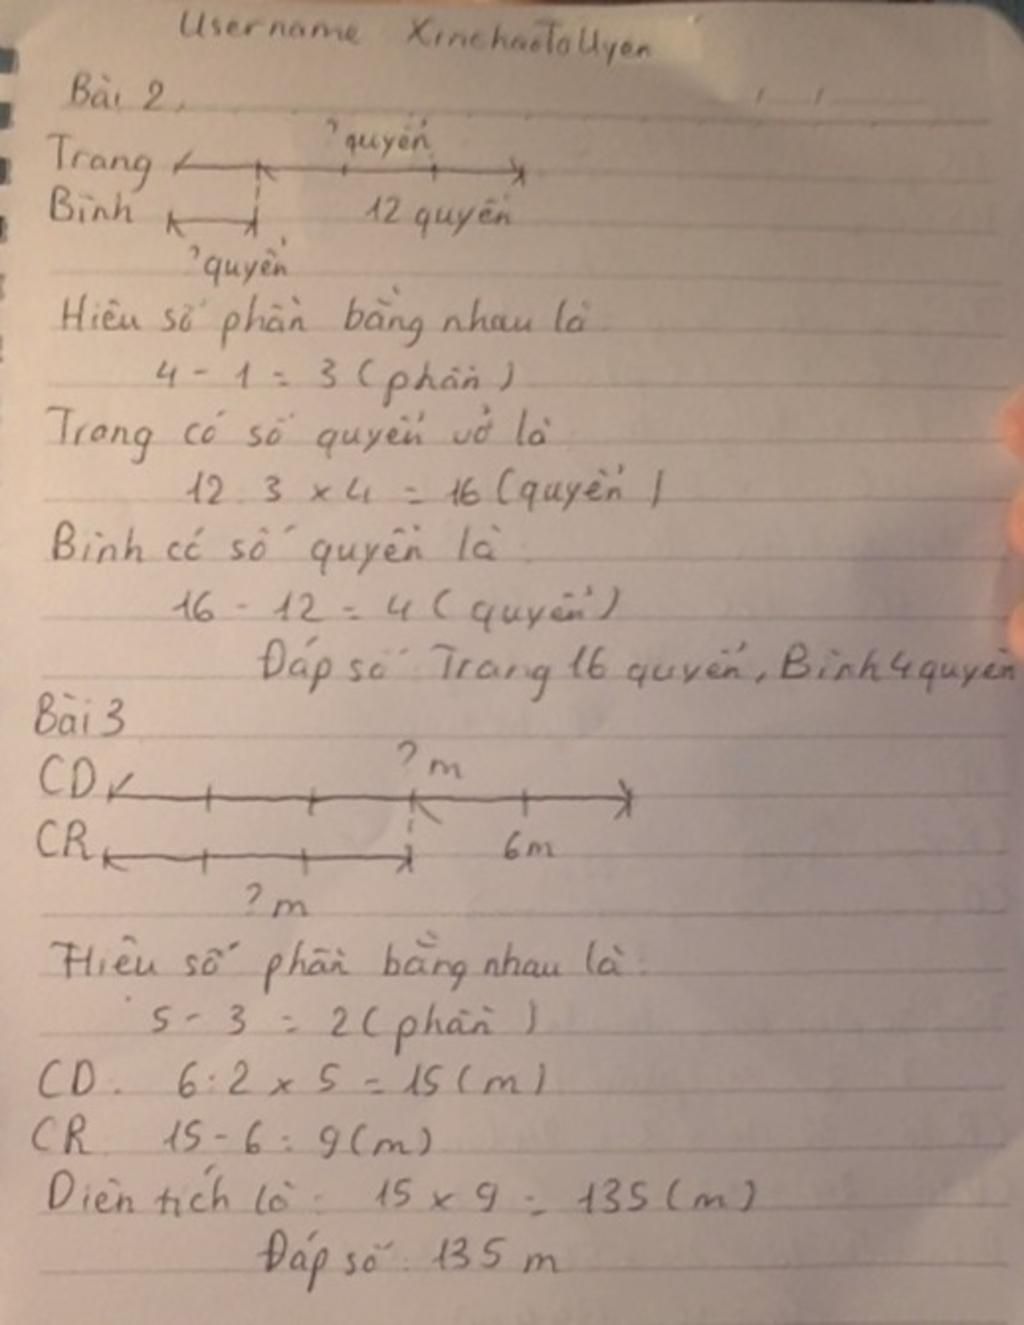 Username XinchaoToUyen
Bài 2,
? quyển
Trang
Bình 12 quyển
? quyển
Hiêu số phần bằng nhau là
4 - 1 = 3 (phần)
Trang có số quyển vở là
12 : 3 x 4 = 16 (quyển)
Bình có số quyển là
16 - 12 = 4 (quyển)
Đáp số Trang 16 quyển, Bình 4 quyển
Bài 3
? m
CD
CR 6m
? m
Hiêu số phần bằng nhau là:
5 - 3 = 2 (phần)
CD. 6 : 2 x 5 = 15 (m)
CR 15 - 6 = 9 (m)
Diên tích là: 15 x 9 = 135 (m)
Đáp số: 135 m